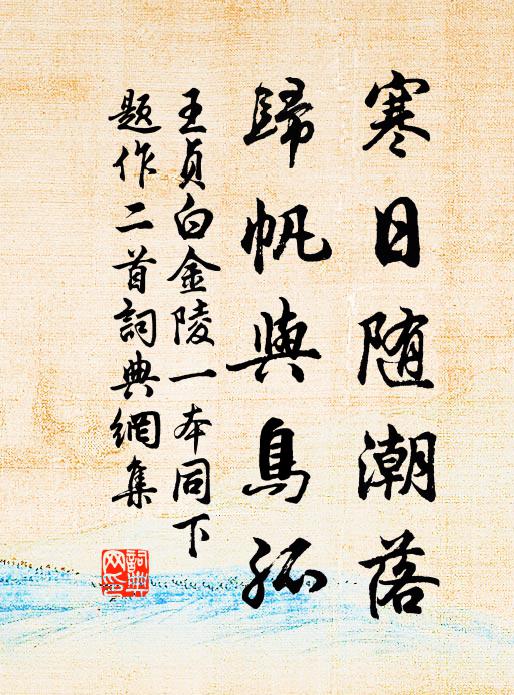 寒日随潮落
歸帆與鳥孤
王貞白金陵一本同下
題作二首詞典網集
詞典
网印